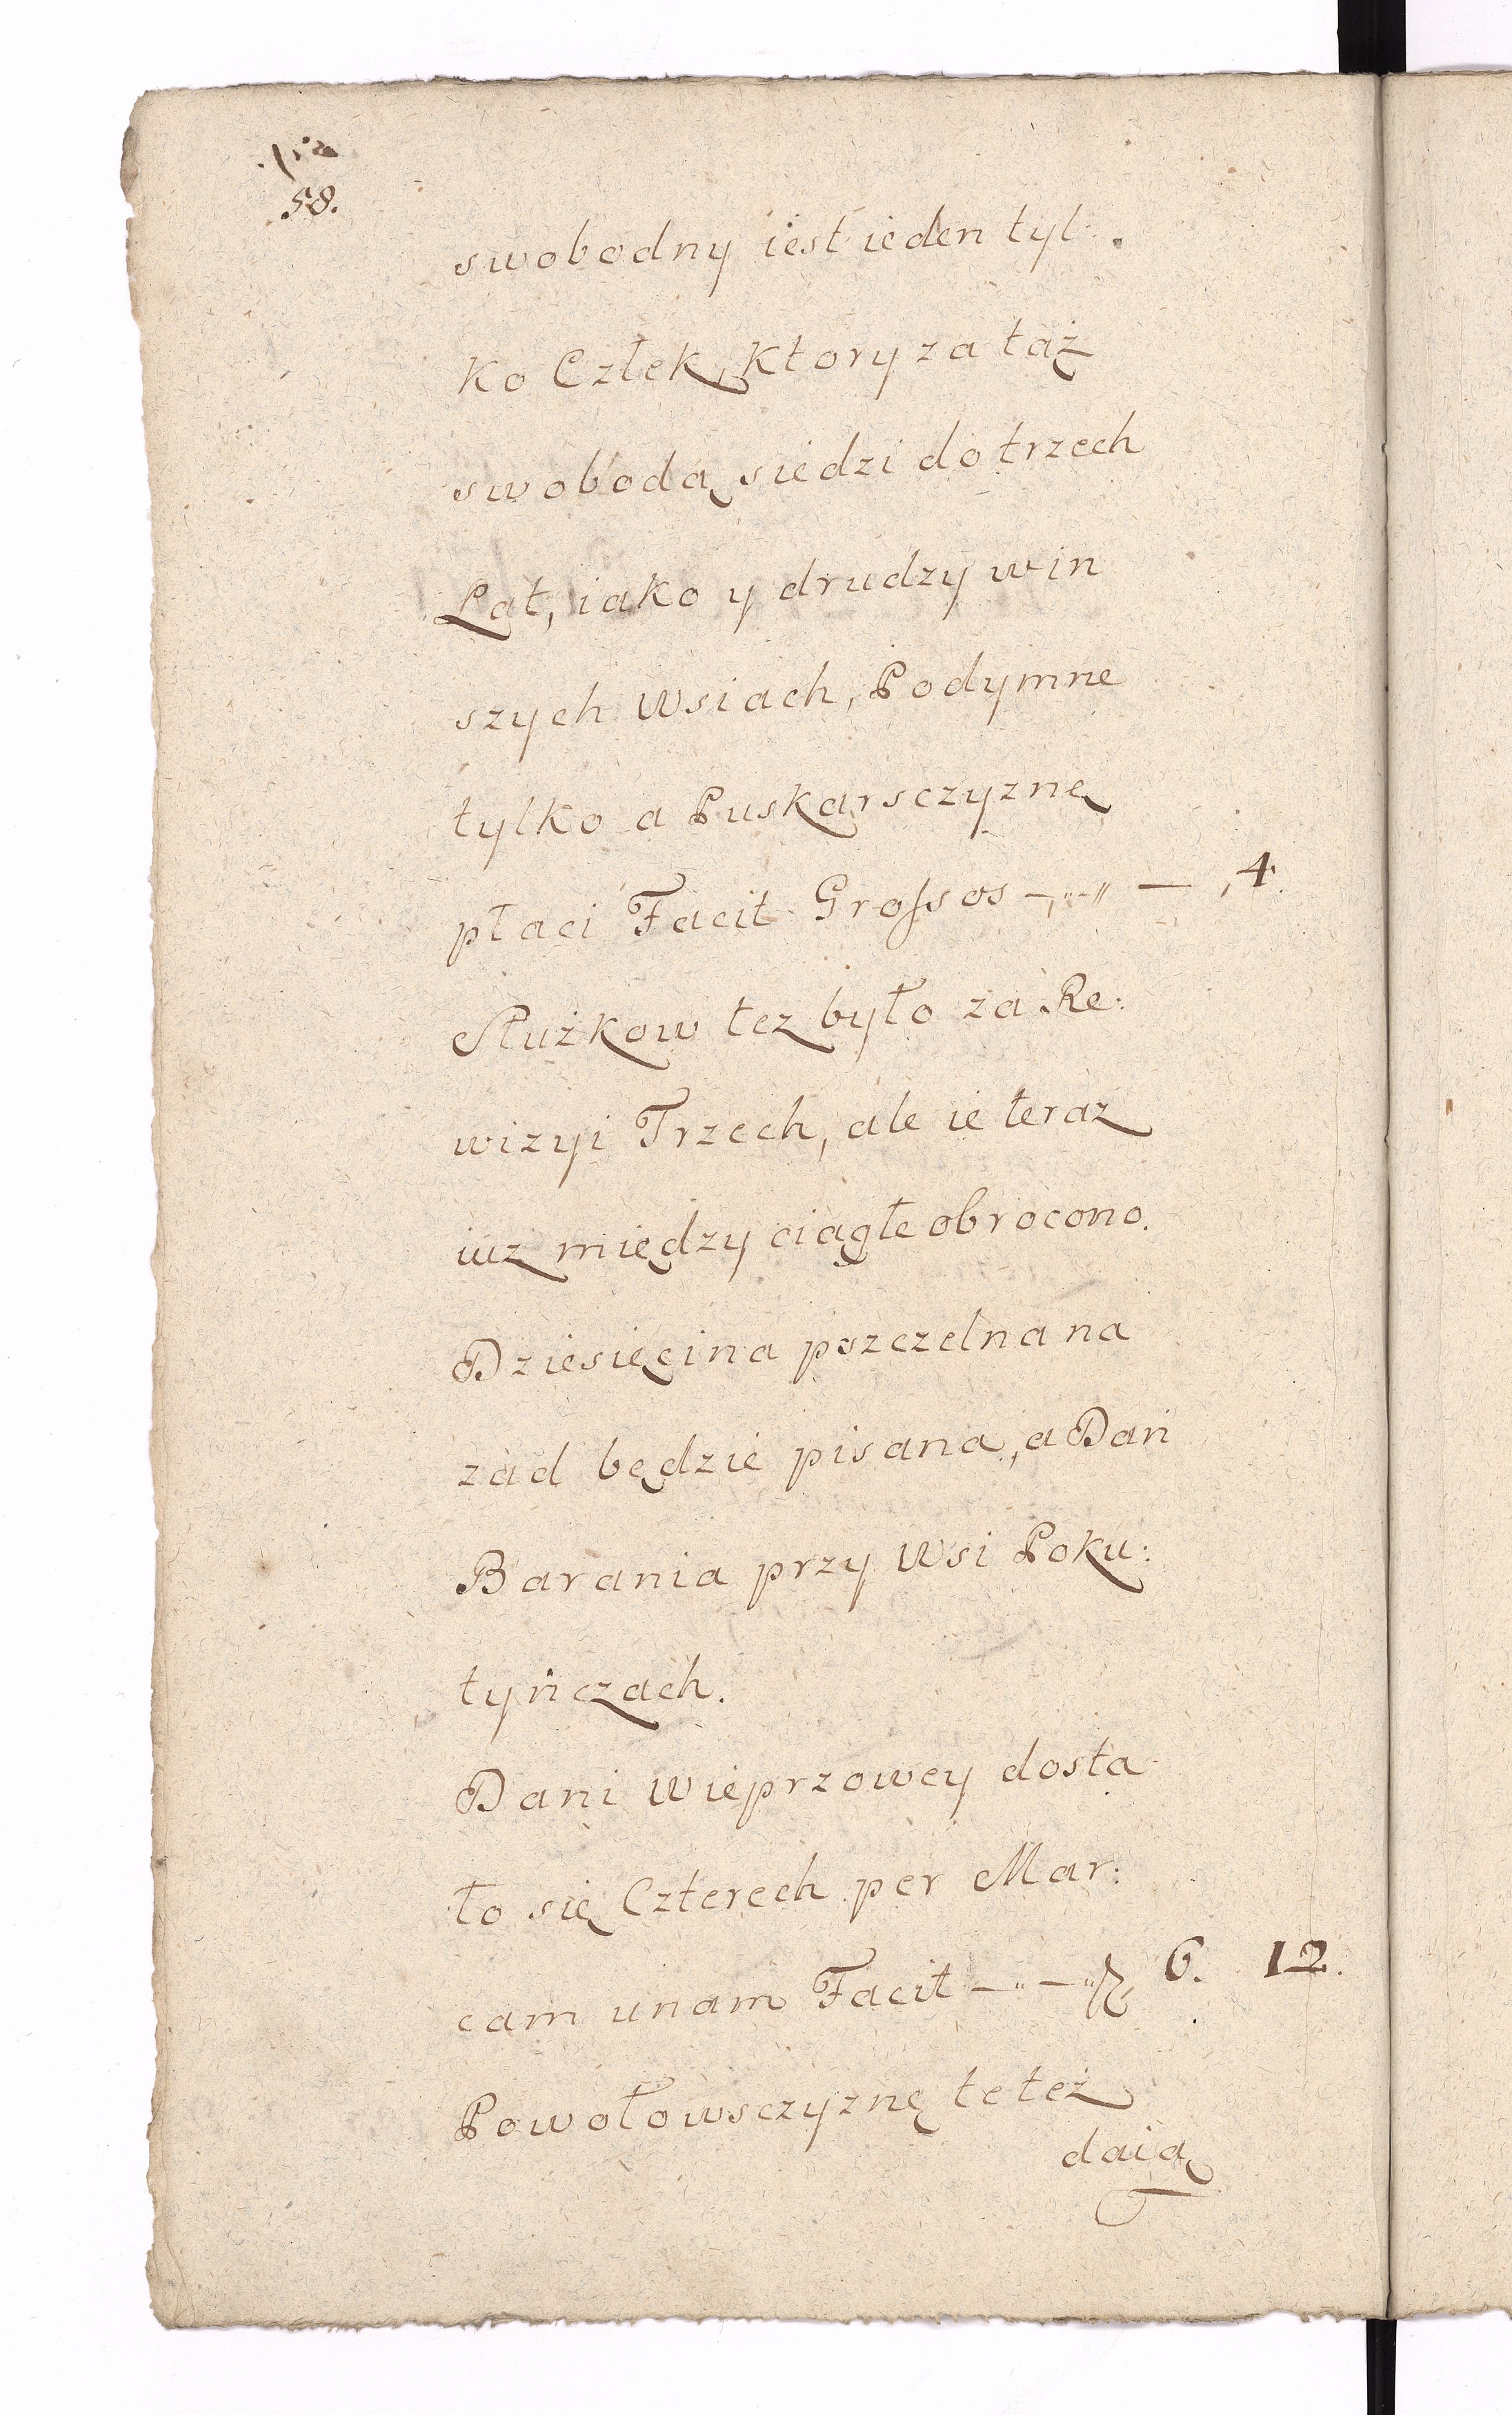 58.
swobodny iest ieden tyl:
ko Człek, Ktory za taż
swobodą siedzi do trzech
Lat, iako y drudzy w in
szych Wsiach, Podymne
tylko a Puskarsczyznę
płaci Facit Grossos — 4.
Służkow tez było za Re:
wizyi Trzech, ale ie teraz
iuz między ciągłe obrocono.
Dziesięcina pszczelna na
zad będzie pisana, a Dań
Barania przy Wsi Poku:
tyńczach.
Dani wieprzowey dosta
ło się Czterech per Mar:
cam unam Facit — 6. 12.
Powołowsczyznę te też
daią